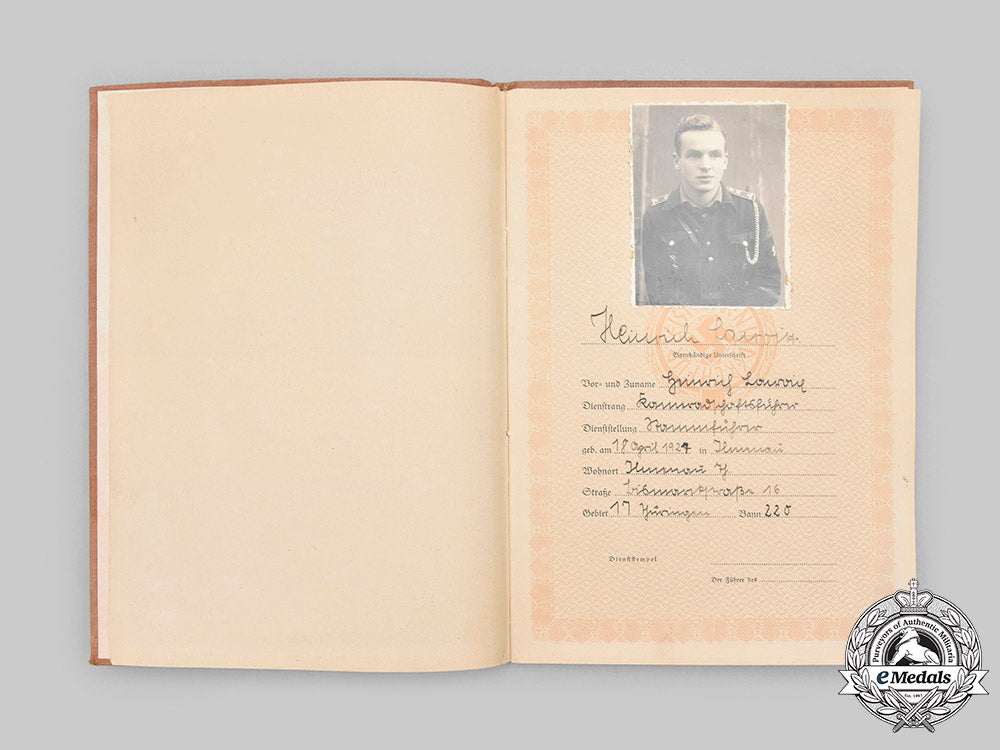 Heinrich
Eigenhändige Unterschrift
Vor- und Zuname Heinrich
Dienstrang Kameradschaftsführer
Dienststellung Stammführer
geb. am 18 April 1924 in Ilmenau
Wohnort Ilmenau Th.
Straße Bismarkstraße 16
Gebiet 17 Thüringen Bann 220
Dienststempel
Der Führer des
Purveyors of Authentic Militaria
eMedals